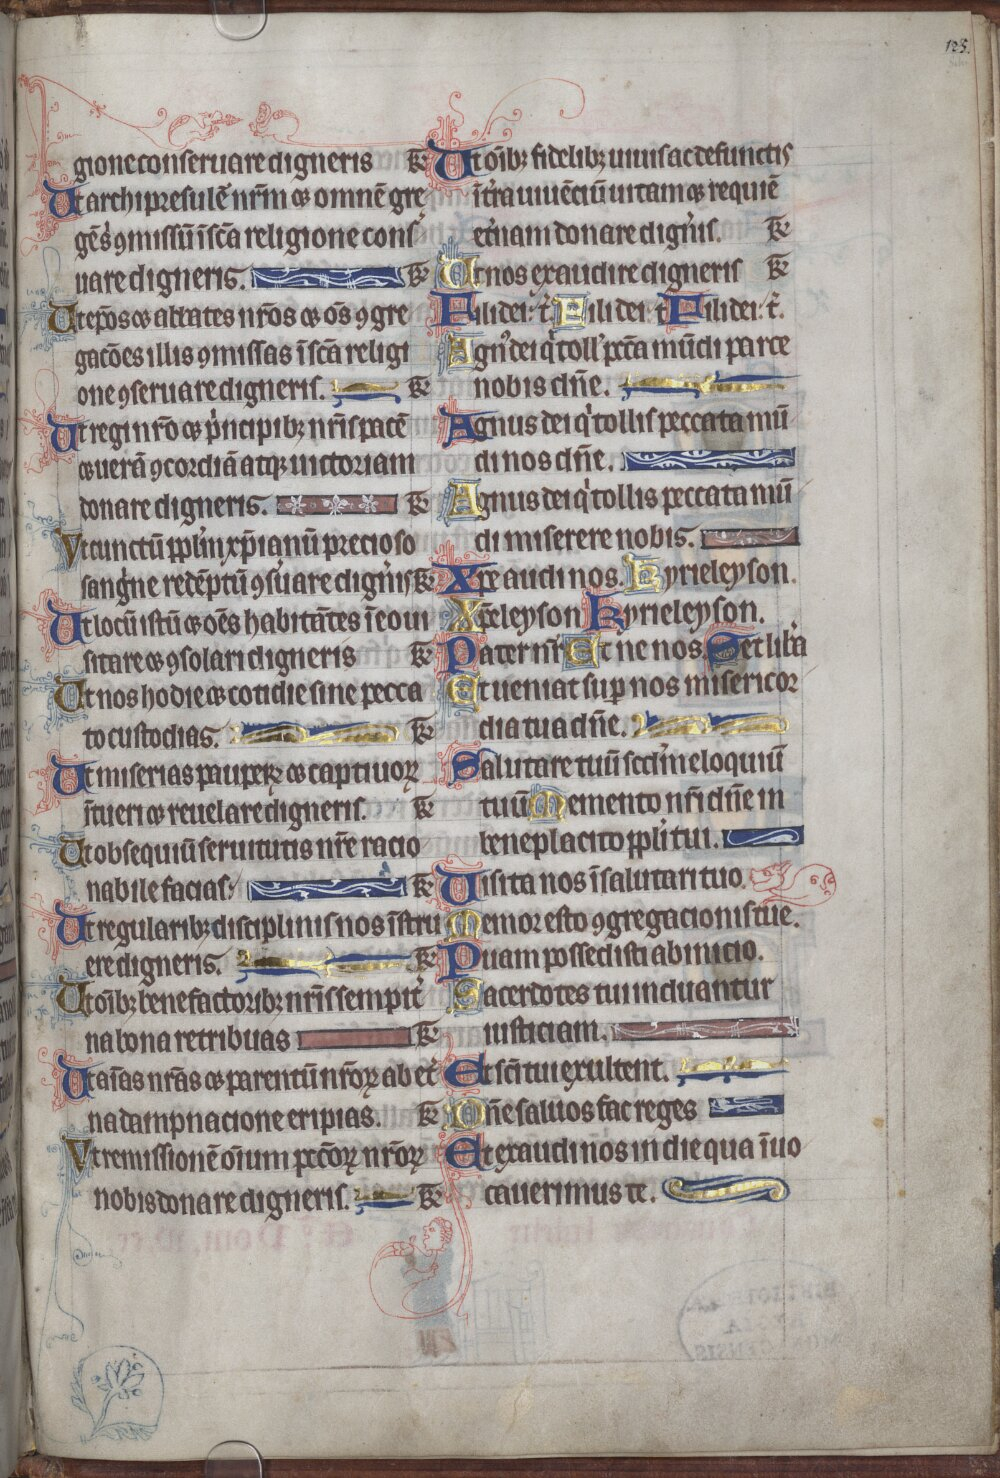 125.
gione conseruare digneris k̄
Ut archipresulē nr̄m ⁊ omnē gre
gēs ꝯmissū ī sc̄a religione cons
uare digneris. k̄
Ut ep̄os ⁊ abbates nr̄os ⁊ oēs ꝯgre
gac̄ōes illis ꝯmissas ī sc̄a religi
one ꝯseruare digneris. k̄
Ut regi nr̄o ⁊ pͥncipibꝫ nr̄is pacē
⁊ uerā ꝯcordiā atqꝫ uictoriam
donare digneris. k̄
Vt cunctū pp̄lm xp̄ianū precioso
sangͥne redēptū ꝯsꝰuare digͥnis k̄
Ut locū istū ⁊ oēs habitātes ī eo ui
sitare ⁊ ꝯsolari digneris k̄
Ut nos hodie ⁊ cotidie sine pecca
to custodias. k̄
Ut miserias pauperꝝ ⁊ captiuoꝝ
ītueri ⁊ reuelare digneris. k̄
Ut obsequiū seruitutis nr̄e racio
nabile facias. k̄
Ut regularibꝫ disciplinis nos īstru
ere digneris. k̄
Ut oībꝫ benefactoribꝫ nr̄is sempit̄
na bona retribuas k̄
Ut aīas nr̄as ⁊ parentū nr̄oꝝ ab et̄
na dampnacione eripias. k̄
Vt remissionē oīum pc̄c̄oꝝ nr̄oꝝ
nobis donare digneris. k̄
Ut oībꝫ fidelibꝫ uiuis ac defunctis
īt̄ra uiuēciū uitam ⁊ requiē
et̄nam donare digͥnis. k̄
Ut nos exaudire digneris k̄
Fili dei: t̄. Fili dei t̄ Fili dei: t̄.
Agnꝰ dei qͥ toll' pc̄ta mūdi parce
nobis dn̄e.
Agnus dei qͥ tollis peccata mū
di nos dn̄e.
Agnus dei qͥ tollis peccata mū
di miserere nobis.
Xp̄e audi nos. Kyrieleyson.
Xp̄eleyson Kyrieleyson.
Pater nr̄ Et ne nos Set lib̄a
Et ueniat sup̄ nos misericor
dia tua dn̄e.
Salutare tuū scd̄m eloquiū
tuū Memento nr̄i dn̄e in
beneplacito pp̄li tui.
Uisita nos ī salutari tuo.
Memor esto ꝯgregacionis tue.
Quam possedisti ab inicio.
Sacerdotes tui induantur
iusticiam.
Et sc̄i tui exultent.
Dn̄e saluos fac reges
Et exaudi nos in die qua īuo
cauerimus te.